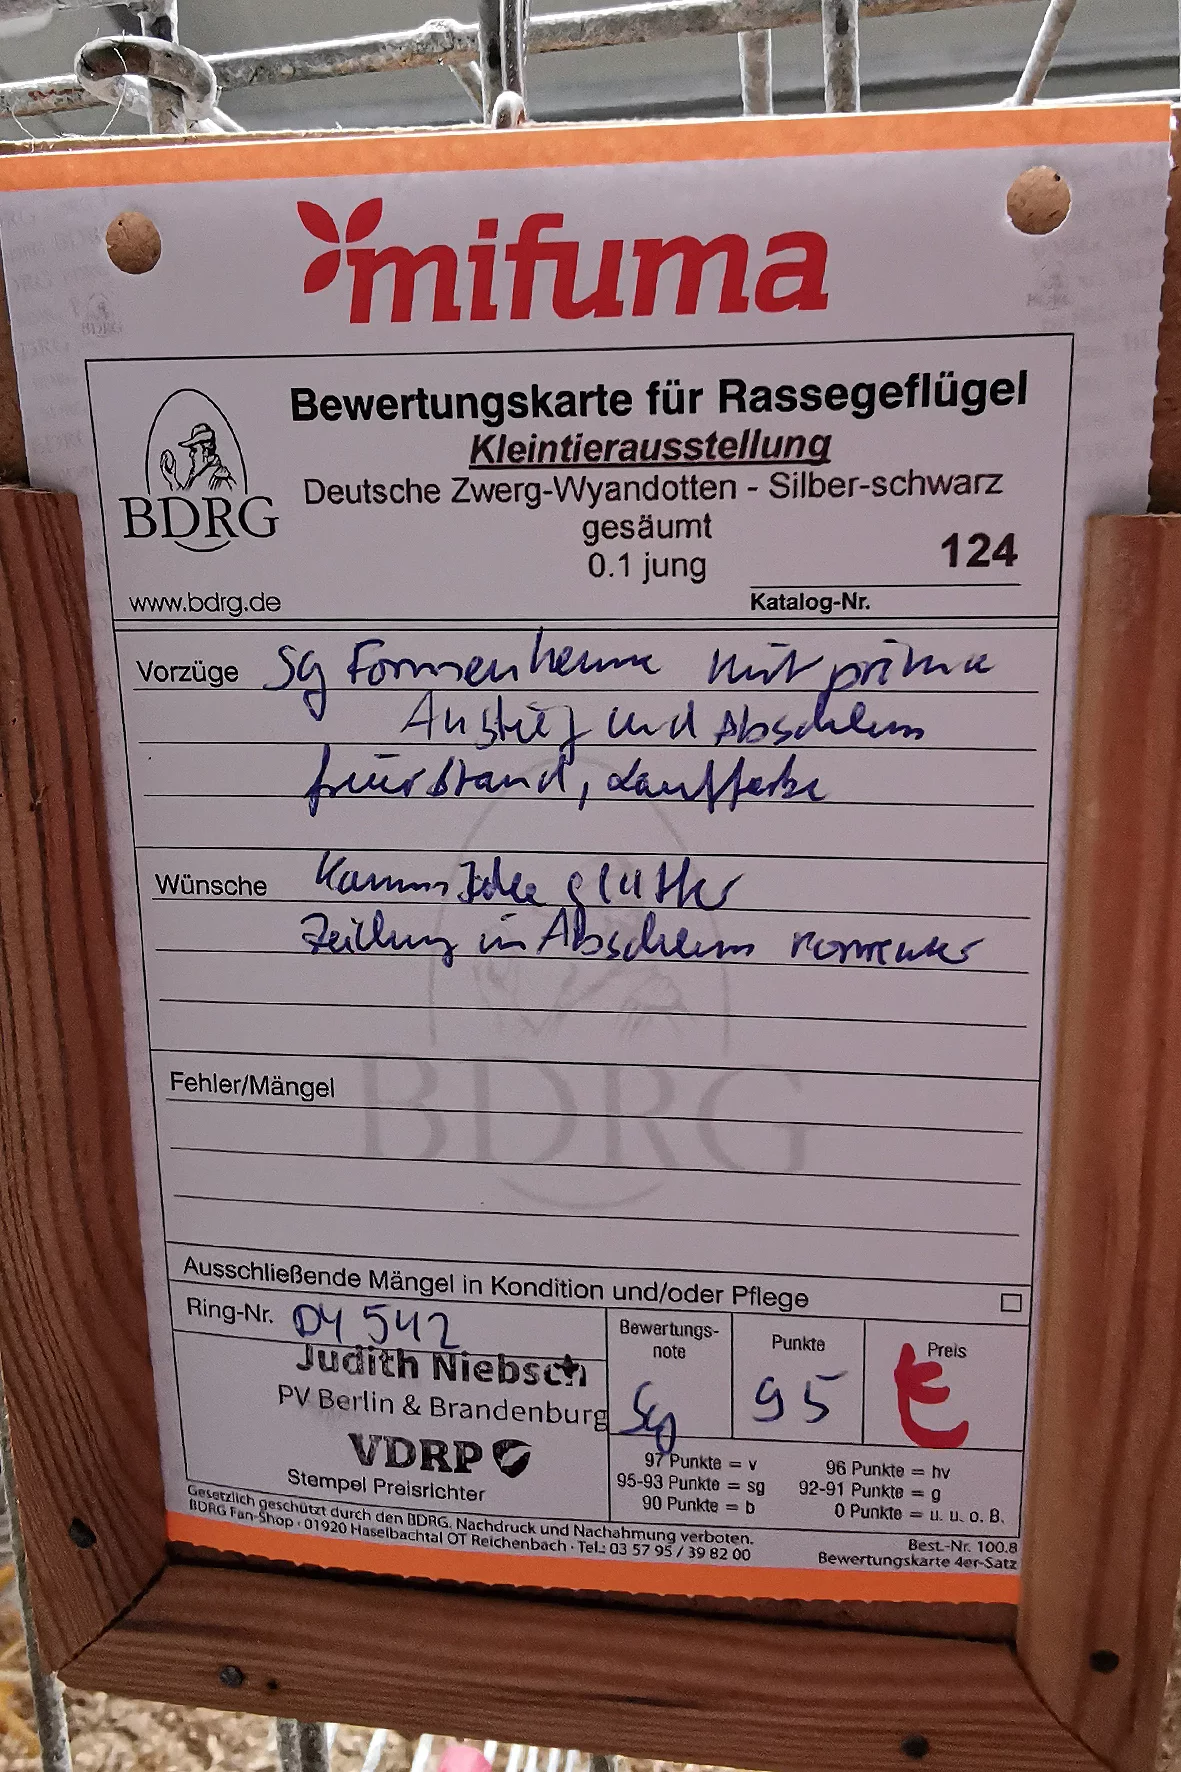 mifuma
Bewertungskarte für Rassegeflügel
Kleintierausstellung
Deutsche Zwerg-Wyandotten - Silber-schwarz
gesäumt
0.1 jung
124
Katalog-Nr.
BDRG
www.bdrg.de
Vorzüge Sg Formenhenne mit prima
Anstieg und Abschluss
freier Stand, Lauffarbe
Wünsche glatter
in Abschluss
BDRG
Fehler/Mängel
Ausschließende Mängel in Kondition und/oder Pflege
Ring-Nr. DY 542
Judith Niebsch
PV Berlin & Brandenburg
VDRP
Stempel Preisrichter
Bewertungs-
note
Sg
Punkte
95
Preis
E
97 Punkte = v
95-93 Punkte = sg
90 Punkte = b
96 Punkte = hv
92-91 Punkte = g
0 Punkte = u. u. o. B.
Gesetzlich geschützt durch den BDRG. Nachdruck und Nachahmung verboten.
BDRG Fan-Shop · 01920 Haselbachtal OT Reichenbach · Tel.: 03 57 95 / 39 82 00
Best.-Nr. 100.8
Bewertungskarte 4er-Satz